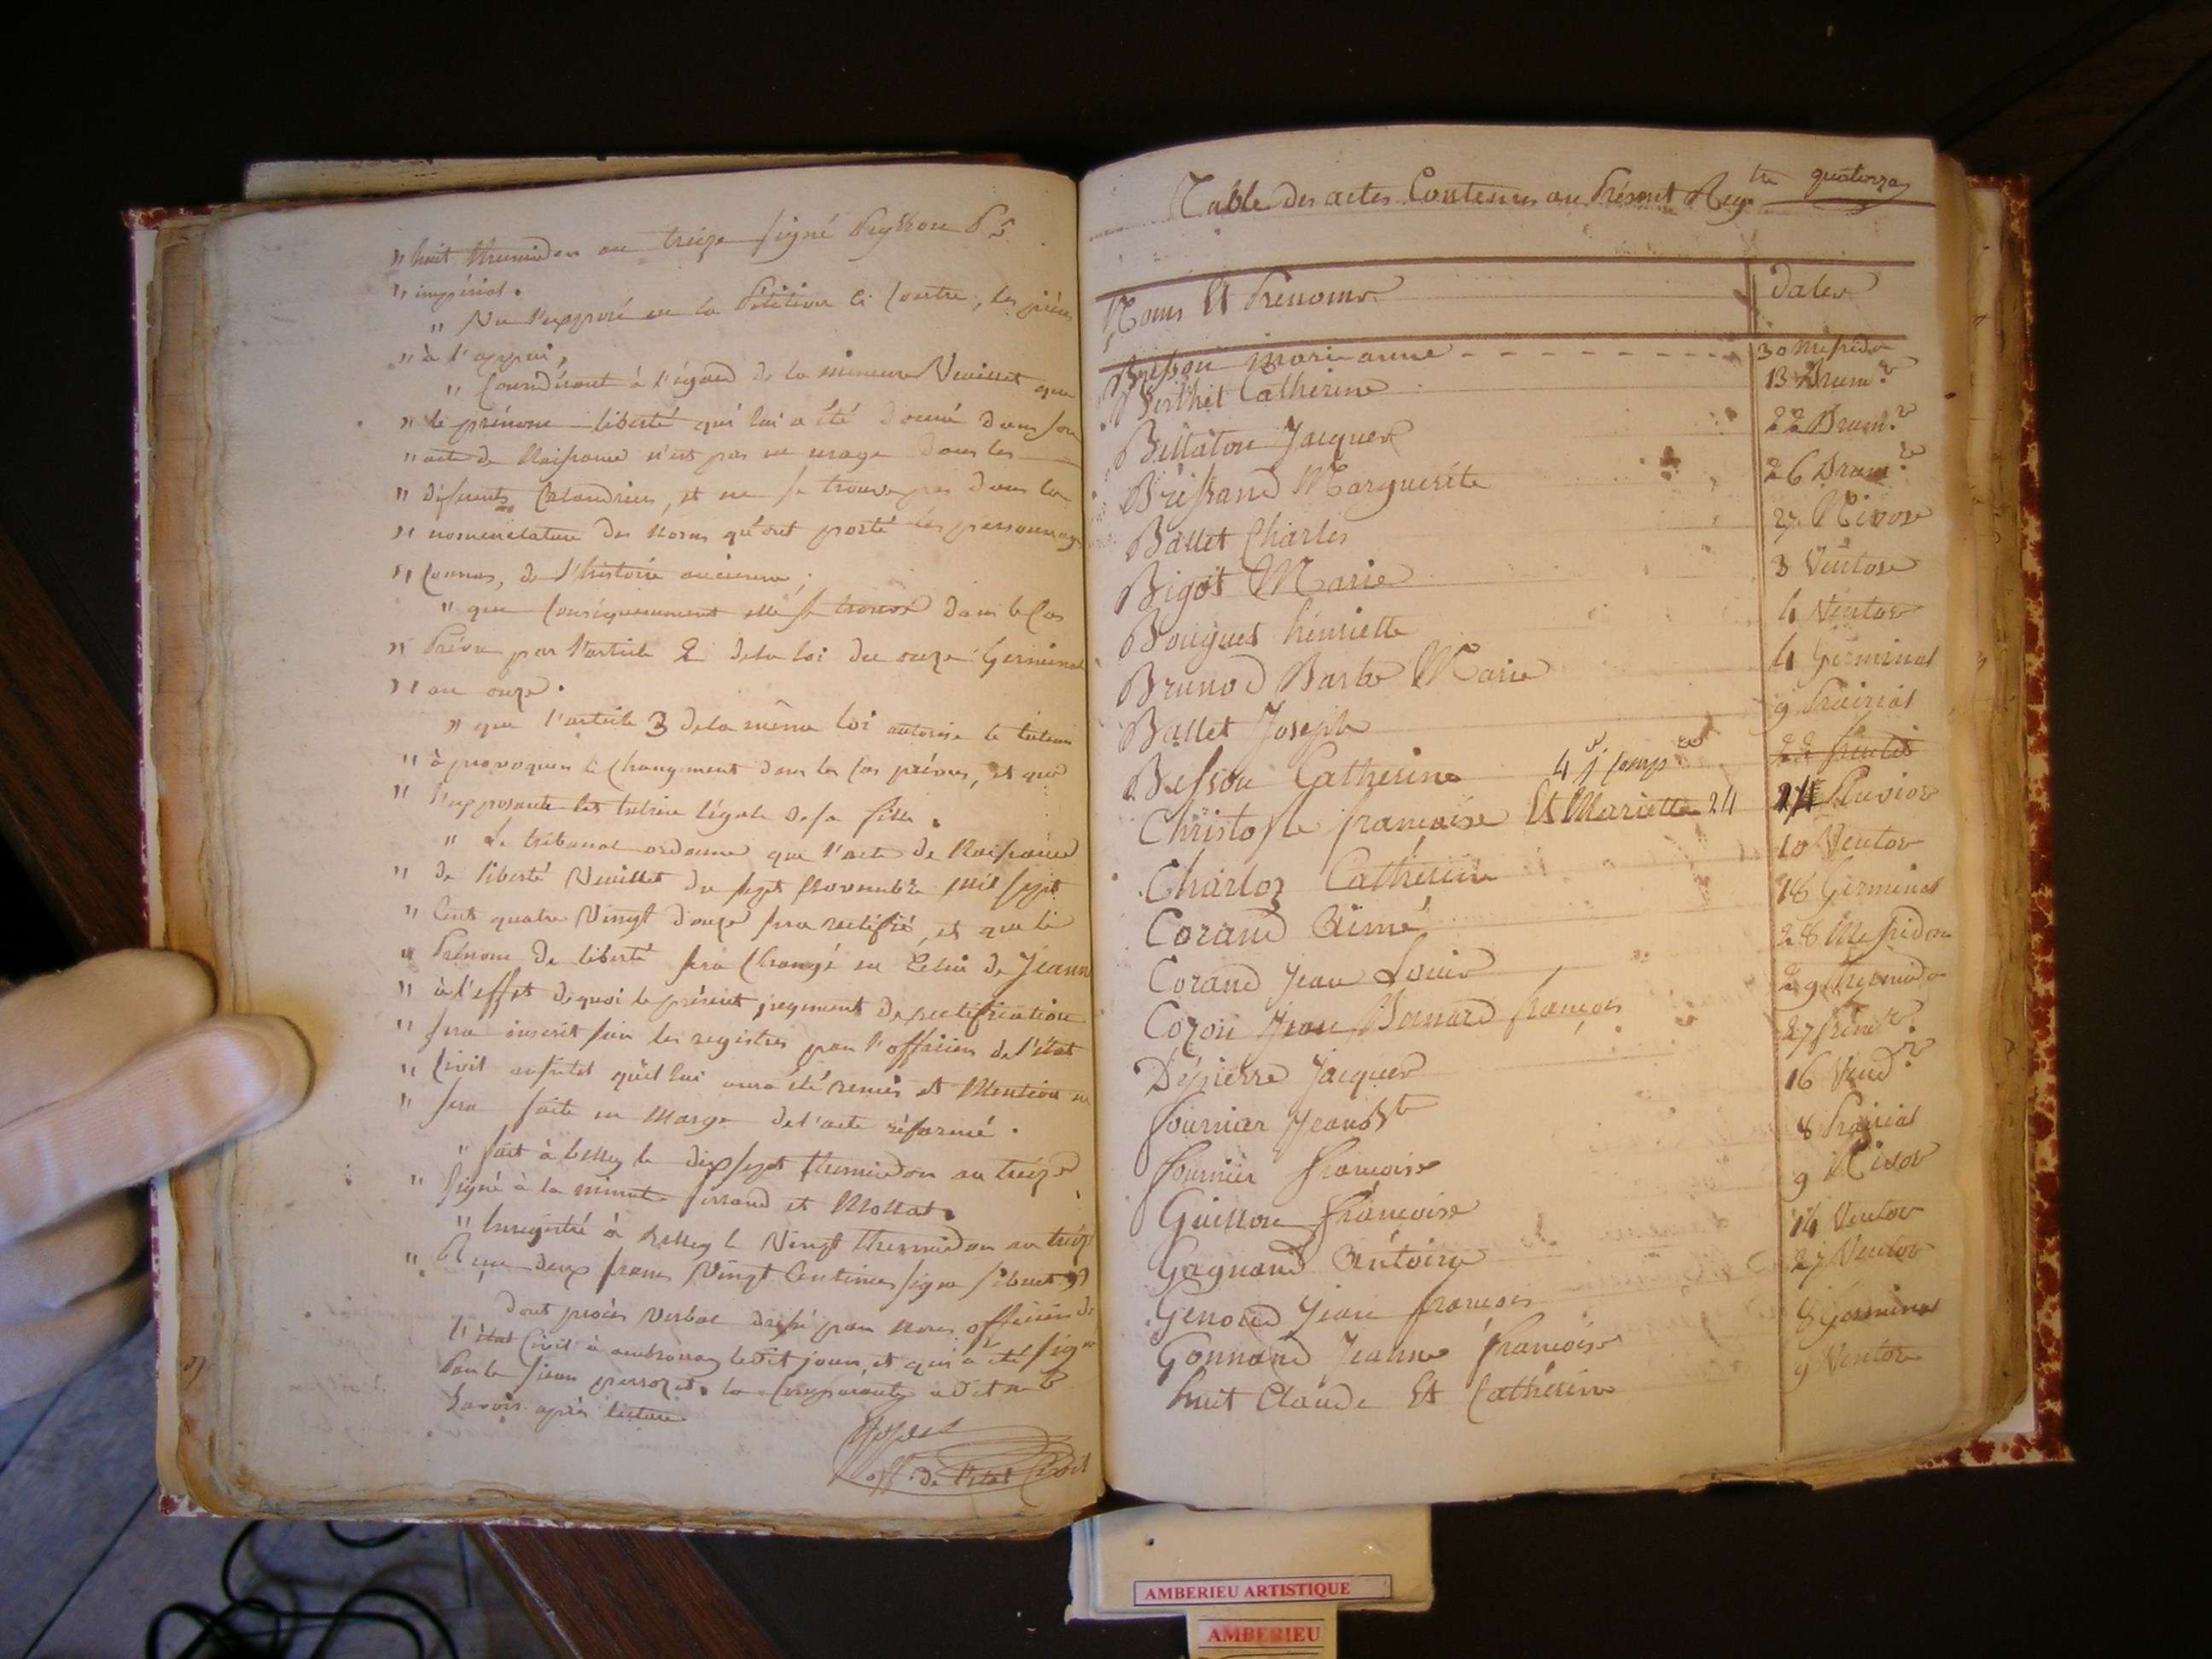 " huit thermidor an treize signé Peysson Pr
" impérial.
" Vu l'exposé en la Pétition ci contre, les pièces
" à l'appui,
" Considérant à l'égard de la mineure Veuillet que
" le prénom liberté qui lui a été donné dans son
" acte de Naissance n'est pas en usage dans les
" différents Calendriers, et ne se trouve pas dans la
" nomenclature des noms qu'ont porté les personnages
" Connus, de l'histoire ancienne;
" que Conséquemment elle se trouve dans le Cas
" Prévu par l'article 2 de la loi du onze Germinal
" an onze.
" que l'article 3 de la même loi autorise le tuteur
" à provoquer le Changement dans les Cas prévus, et que
" l'exposante est tutrice légale de sa fille.
" Le tribunal ordonne que l'acte de Naissance
" de liberté Veuillet du sept Novembre mil sept
" Cent quatre Vingt douze sera rectifié, et que le
" Prénom de liberté sera Changé en Celui de Jeanne
" à l'effet de quoi le présent jugement de rectification
" sera inscrit sur les registres par l'officier de l'état
" Civil aussitot qu'il lui aura été remis et Mention en
" sera faite en Marge de l'acte réformé.
" fait à belley le dix sept thermidor an treize
" Signé à la minute ferrand et Mollat.
" Enregistré à belley le Vingt thermidor an treize
" Reçu deux francs Vingt Centimes signé sibuet
Dont procès Verbal dressé par Nous officier de
l'état Civil à ambronay ledit jour, et qui a été signé
Par le sieur perrozet. la Comparante a dit ne le
Savoir après lecture
off. de l'état Civil
Table des actes Contenus au Présent Regtre quatorze
Noms Et Prénoms
Dates
Bresson Marianne - - - - - - - - 30 Messidor
Berthet Catherine 13 Brume
Billaton Jacques 22 Brume
Brissand Marguerite 26 Brume
Ballet Charles 27 Nivose
Bigot Marie 3 Ventose
Bouguet henriette 4 Ventose
Brunod Barbe Marie 4 Germinal
Ballet Joseph 9 Prairial
Besson Catherine 4 j Comp
Christophe françoise Et Mariette 24 Pluviose
Charloz Catherine 10 Ventose
Corand Aimé 18 Germinal
Corand Jean Louis 28 Messidor
Cozon Jean Bernard françois 29 thermidor
Dépierre Jacques 27 frim
fournier Jean Bte 16 Vend
fournier françoise 8 Prairial
Guillon françoise 9 Nivose
Gagnand Antoine 14 Ventose
Genoud Jean françois 27 Ventose
Gonnand Jeanne françoise 8 Germinal
huit Claude Et Catherine 9 Ventose
AMBERIEU ARTISTIQUE
AMBERIEU